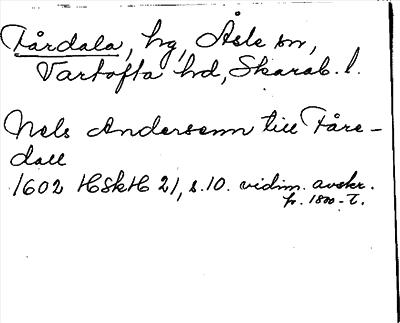 Fårdala, hg, Åsle sn,
Vartofta hd, Skarab. l.
Nels Andersenn till Fåre-
dall
1602 HSkH 21, s. 10. vidim. avskr.
fr. 1800-t.